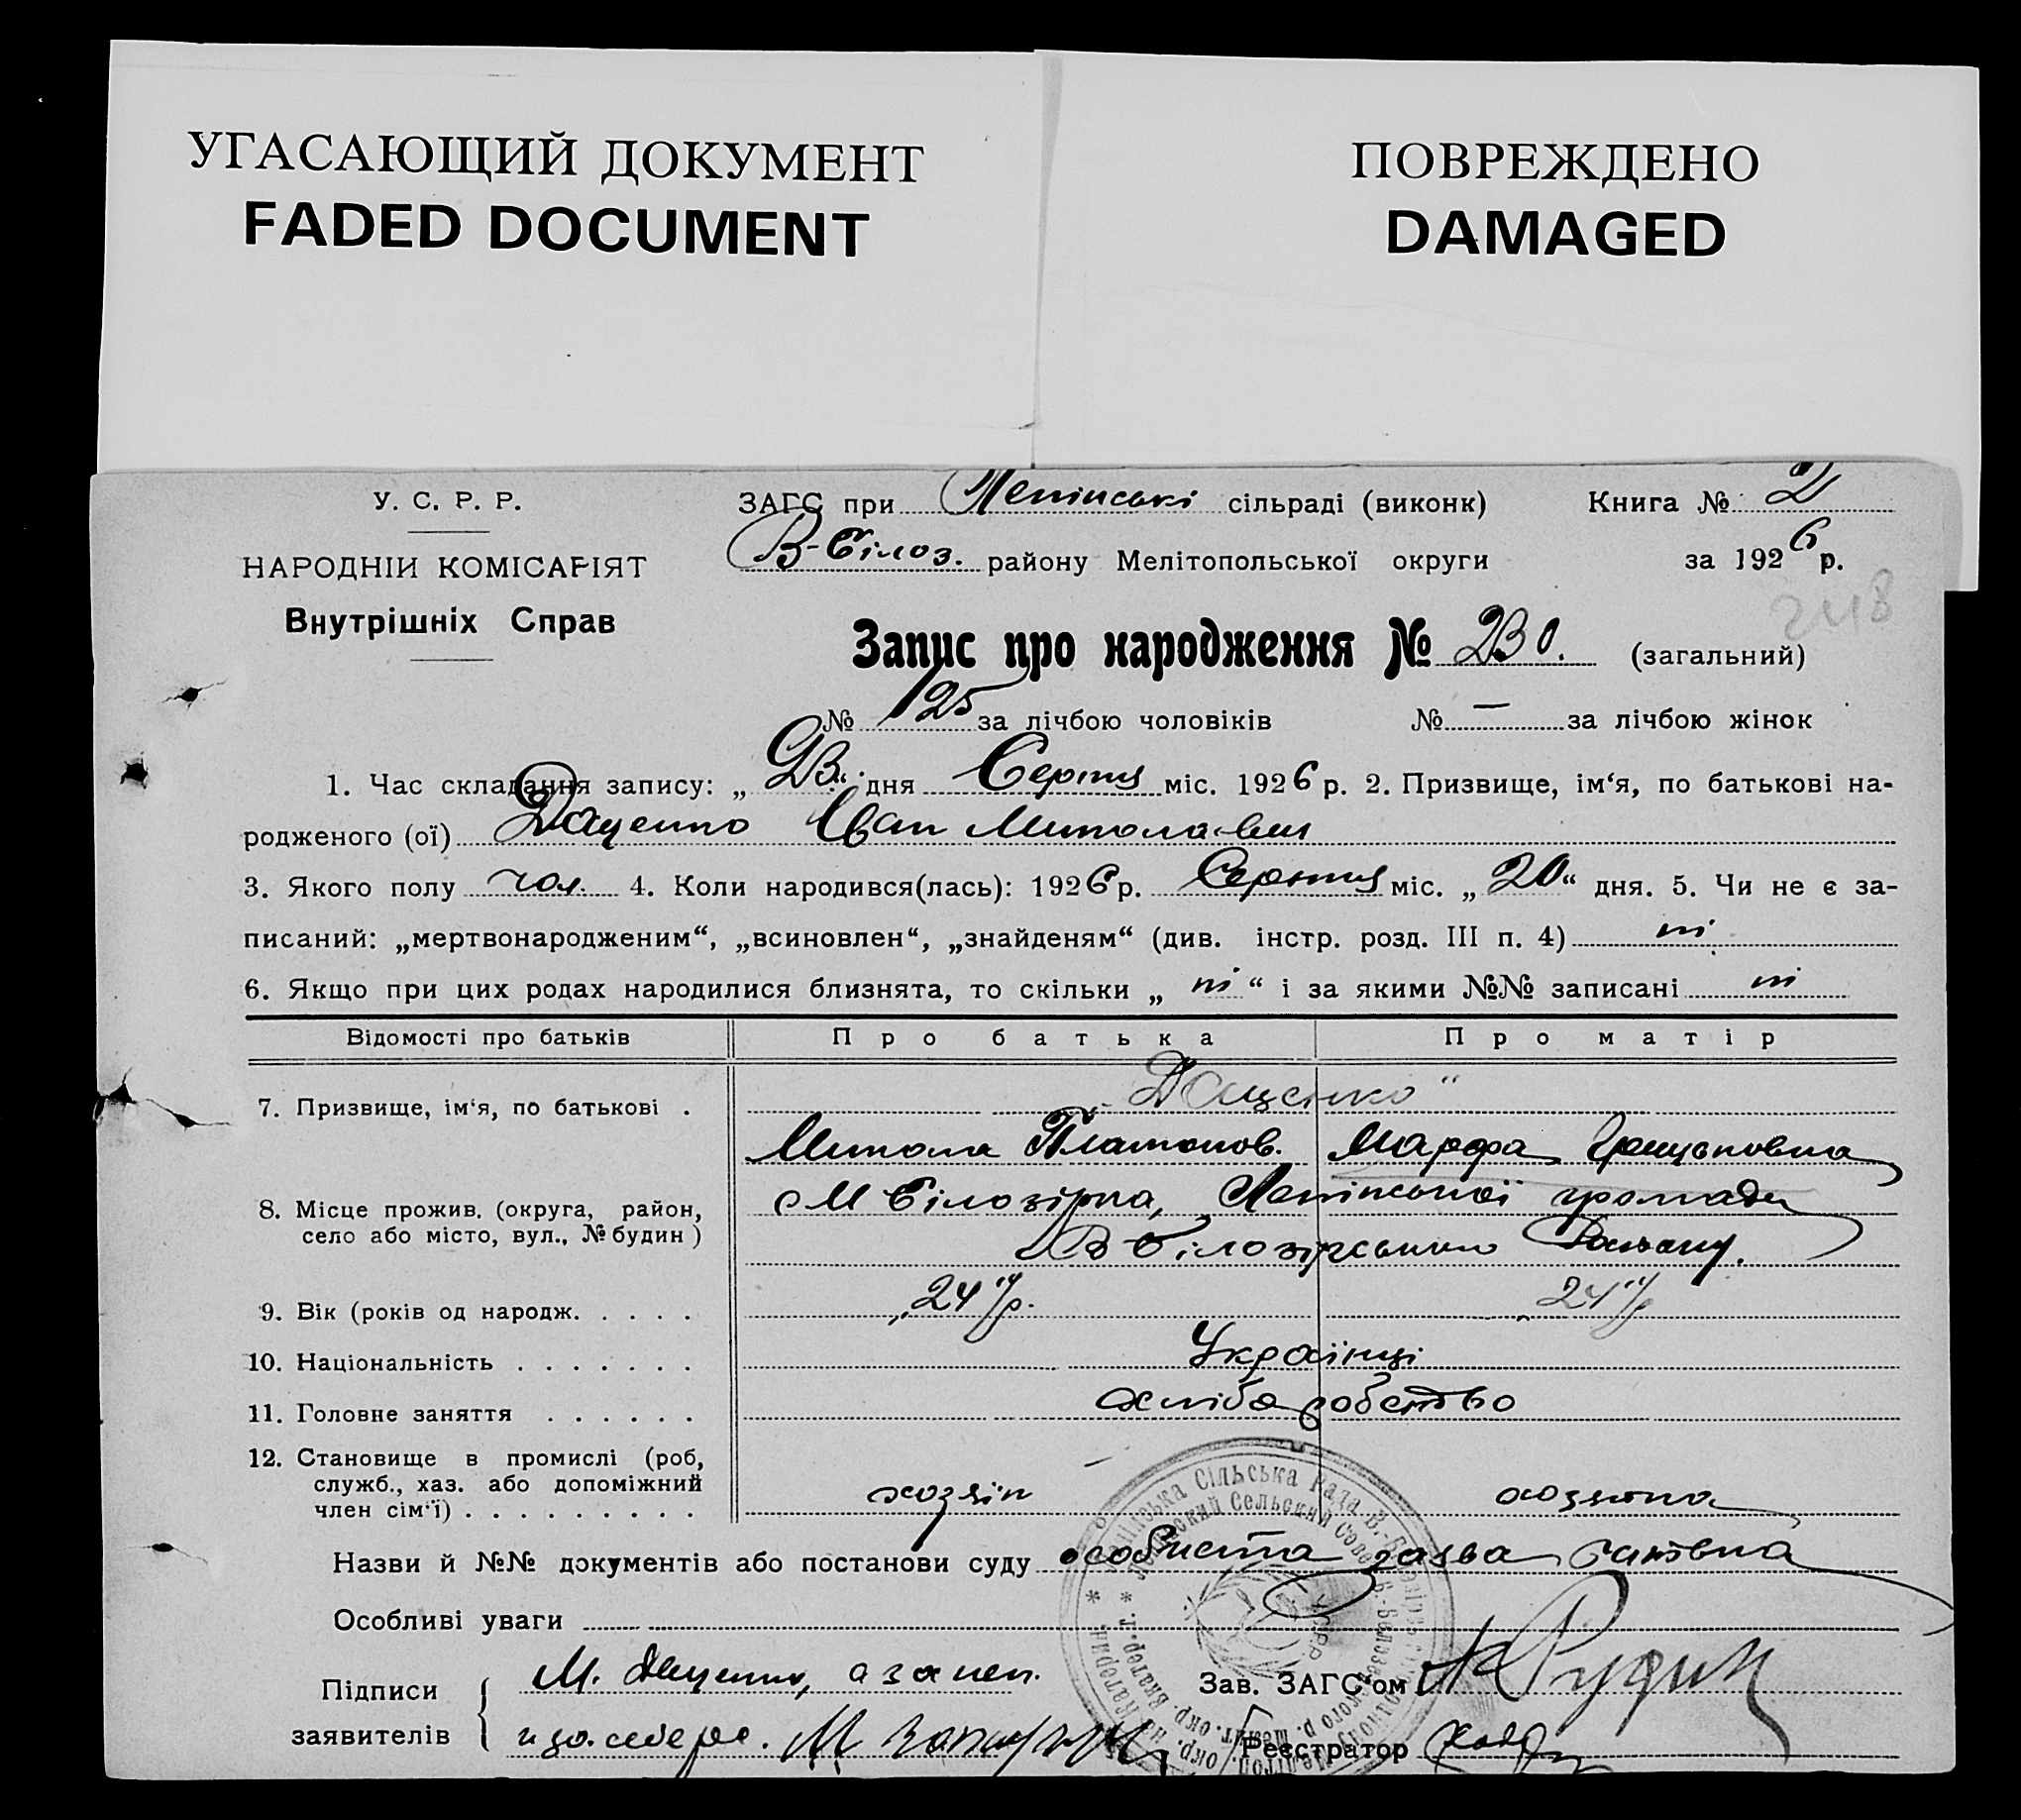 УГАСАЮЩИЙ ДОКУМЕНТ
FADED DOCUMENT
ПОВРЕЖДЕНО
DAMAGED
У. С. Р. Р.
НАРОДНІЙ КОМІСАРІЯТ
Внутрішніх Справ
ЗАГС при Ленінські сільраді (виконк) Книга № 2
В-Білоз. району Мелітопольської округи за 1926 р.
248
Запис про народження № 230. (загальний)
№ 125 за лічбою чоловіків № — за лічбою жінок
1. Час складання запису: „23“ дня Серпня міс. 1926 р. 2. Призвище, ім‘я, по батькові на-
родженого (ої) Даценко Іван Миколаевич
3. Якого полу чол. 4. Коли народився(лась): 1926 р. Серпня міс. „20“ дня. 5. Чи не є за-
писаний: „мертвонародженим“, „всиновлен“, „знайденям“ (див. інстр. розд. III п. 4) ні
6. Якщо при цих родах народилися близнята, то скільки „ні“ і за якими №№ записані ні
Відомості про батьків Про батька Про матір
7. Призвище, ім‘я, по батькові . Даценко
Микола Платонов. Марфа
8. Місце прожив. (округа, район, с М Білозірка, Ленінської громади
село або місто, вул., № будин) В Білозірського Району.
9. Вік (років од народж. . . . . 24 р. 24 р
10. Національність . . . . . . . Українці
11. Головне заняття . . . . . . хліборобство
12. Становище в промислі (роб,
служб., хаз. або допоміжний
член сім‘ї) . . . . . . . . . хозяїн хозяйка
Назви й №№ документів або постанови суду особиста заява
Особливі уваги
Підписи М. Даценко, а за неп.
заявителів
Зав. ЗАГС‘ом
Реєстратор